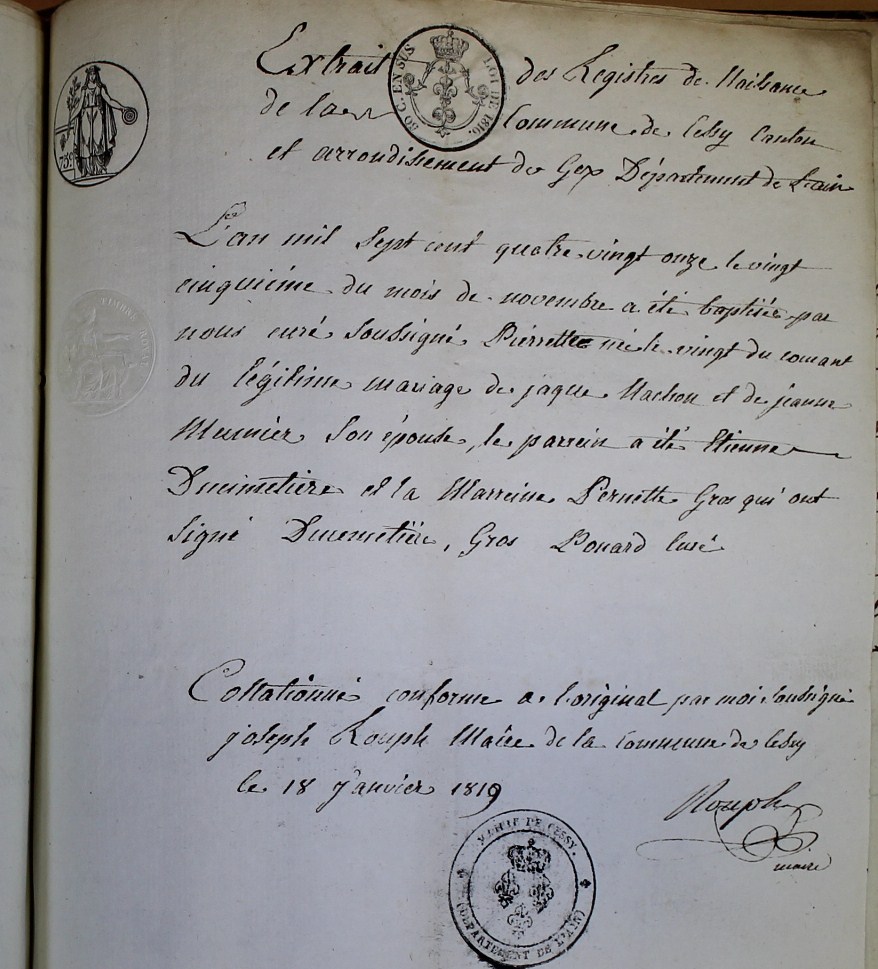 Extrait des Registres de Naissance
de la Commune de Cessy Canton
et arrondissement de Gex Département de L'ain
50 C. EN SUS LOI DE 1816.
75c
TIMBRE ROYAL
L'an mil sept cent quatre vingt onze le vingt
cinquième du mois de novembre a été baptisée par
nous curé soussigné Pierrette née le vingt du courant
du légitime mariage de jaque Machon et de jeanne
Meunier son épouse, le parrein a été Etienne
Ducimetière et la Marreine Pernette Gros qui ont
signé Ducimetière, Gros Pouard Curé
Collationné conforme a l'original par moi soussigné
joseph Rouph Maire de la Commune de Cessy
le 18 Janvier 1819
Rouph
maire
MAIRIE DE CESSY.
(DÉPARTEMENT DE L'AIN)